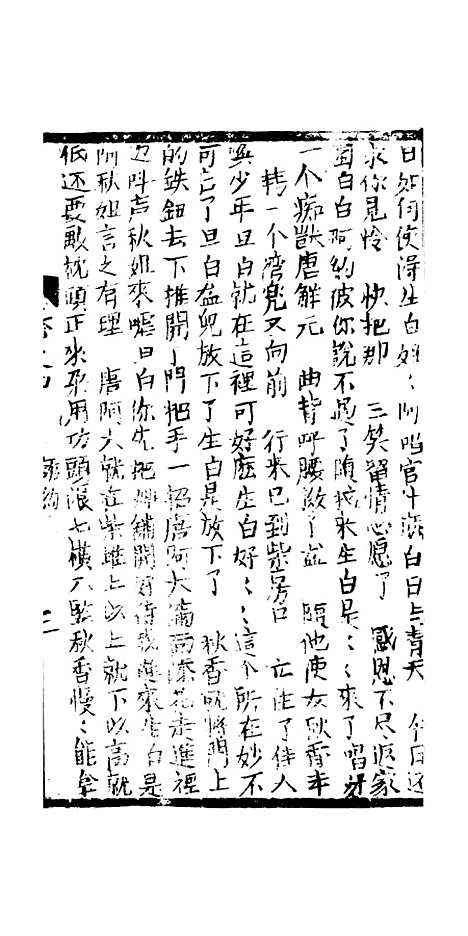 日如何使得生白好〻阿唷官牛癡白日上青天　今日还
求你見怜　快把那　三笑留情心愿了　感恩不尽返家
白白阿約彼你說不過了随我来生白是〻〻来了唱
一个痴獃唐解元　曲背呼腰做了　随他使女秋香
轉一个湾兜又向前　行来已到柴房口　立住了佳人
喚少年旦白就在這裡可好麽生白好〻〻這个所在妙不
可言了旦白盆兜放下了生白是放下了　秋香就將門上
的鉄鈕去下推開了門把手一招唐阿大滿面添花走進裡
边叫声秋姐来嘘旦白你先把舖開好待我進来生白是
阿秋姐言之有理　唐阿大就在柴堆上以上就下以高就
低还要敠枕頭正来弄用功頭滾七橫八豎秋香慢〻能拿
三